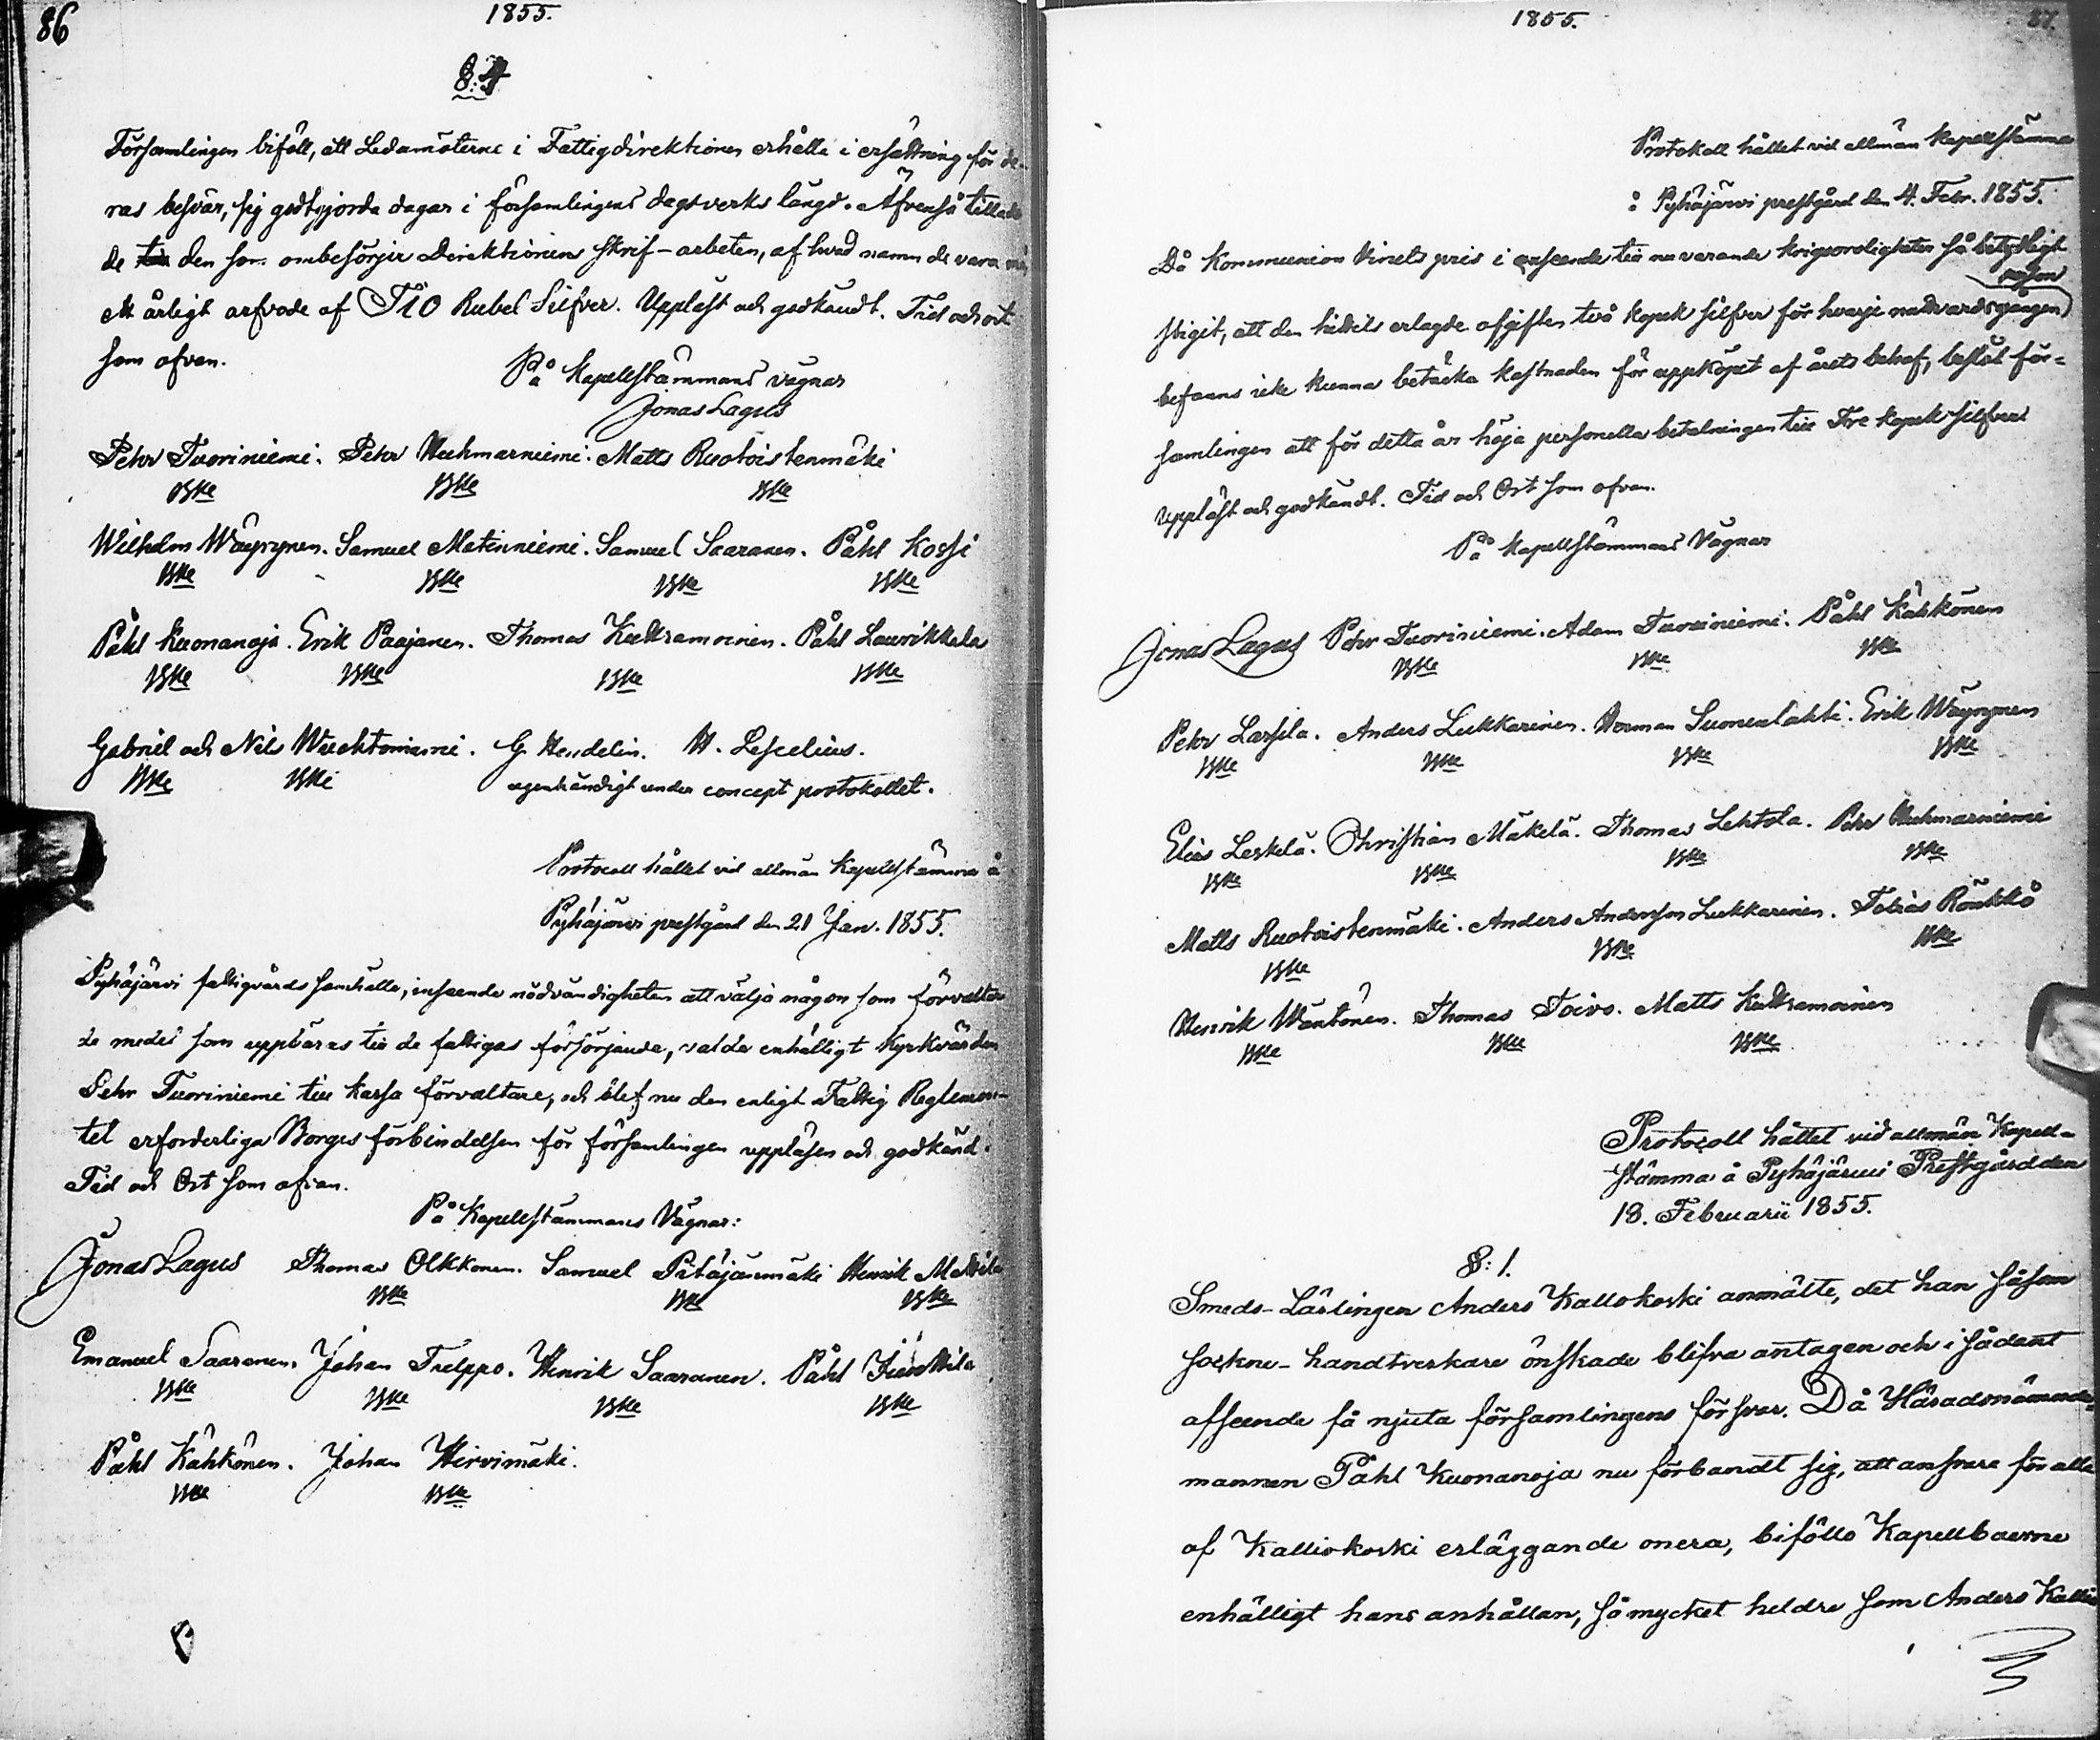 86
1855.
§: 4
Församlingen biföll, att Ledamöterne i Fattigdirektionen erhålla i ersättning för de-
ras besvär, sig godtgjorda dagar i församlingens dagsverks längd. Äfvenså tillade
de till den som ombesörjer Direktionens skrif-arbeten, af hvad namn de vara må,
ett årligt arfvode af TIO Rubel Silfver. Uppläst och godkändt. Tid och ort
som ofvan.
På Kapellstämmans vägnar
Jonas Lagus
Pehr Tuoriniemi. Pehr Huhmarniemi. Matts Ruotoistenmäki
Bmke Bmke Bmke
Wilhelm Wäyrynen. Samuel Matinniemi. Samuel Saaranen. Påhl Kossi
Bmke Bmke Bmke Bmke
Påhl Kuonanoja. Erik Paajanen. Thomas Kuttramoinen. Påhl Laurikkala
Bmke Bmke Bmke Bmke
Gabriel och Nils Wuohtoniemi. G. Hendelin. H. Lescelius.
Bmke Bmke egenhändigt under concept protokollet.
Protocoll hållet vid allmän Kapellstämma å
Pyhäjärvi prestgård den 21 Jan. 1855.
Pyhäjärvi fattigvårds samhälle, inseende nödvändigheten att välja någon som förvaltar
de medel som uppbäras till de fattigas försörjande, valde enhälligt Kyrkvärden
Pehr Tuoriniemi till kassa förvaltare, och blef nu den enligt Fattig Reglemen-
tet erforderliga Borgesförbindelsen för församlingen uppläsen och godkänd.
Tid och Ort som ofvan.
På Kapellstämmans Vägnar:
Jonas Lagus Thomas Olkkonen. Samuel Pitäjänmäki Henrik Mattila
Bmke Bmke Bmke
Emanuel Saaranen. Johan Trelppo. Henrik Saaranen. Påhl Juusttila
Bmke Bmke Bmke Bmke
Påhl Kähkönen. Johan Hirvimäki.
Bmke Bmke
1855.
87.
Protokoll hållet vid allmän Kapellstämma
å Pyhäjärvi prestgård den 4. Febr. 1855.
Då Kommunion Vinets pris i anseende till nu varande krigsoroligheter så betydligt
stigit, att den hittils erlagde afgiften två kopek silfver för hvarje nattvardsgången
befanns icke kunna betäcka kostnaden för uppköpet af årets behof, beslöt för-
samlingen att för detta år höja personella betalningen till Tre kopek silfver.
Uppläst och godkändt. Tid och Ort som ofvan.
På Kapellstämmans Vägnar
Jonas Lagus Pehr Tuoriniemi. Adam Tuoriniemi. Påhl Kähkönen
Bmke Bmke Bmke
Pehr Lassila. Anders Lukkarinen. Herman Suonenlahti. Erik Wäyrynen
Bmke Bmke Bmke Bmke
Elias Leskelä. Christian Mäkelä. Thomas Lehtola. Pehr Huhmarniemi
Bmke Bmke Bmke Bmke
Matts Ruotoistenmäki. Anders Andersson Lukkarinen. Tobias Rönkkö
Bmke Bmke Bmke
Henrik Wäntönen. Thomas Toivo. Matts Kuttramoinen
Bmke Bmke Bmke
Protocoll hållet vid allmän Kapell-
stämma å Pyhäjärvi Prestgård den
18. Februarii 1855.
§: 1.
Smeds-Lärlingen Anders Kallokoski anmälte, det han såsom
sockne-handtverkare önskade blifva antagen och i sådant
afseende få njuta församlingens försvar. Då Häradsnämnde-
mannen Påhl Kuonanoja nu förbandt sig, att ansvara för alla
af Kalliokoski erläggande onera, biföllo Kapellboerne
enhälligt hans anhållan, så mycket heldre som Anders Kallio